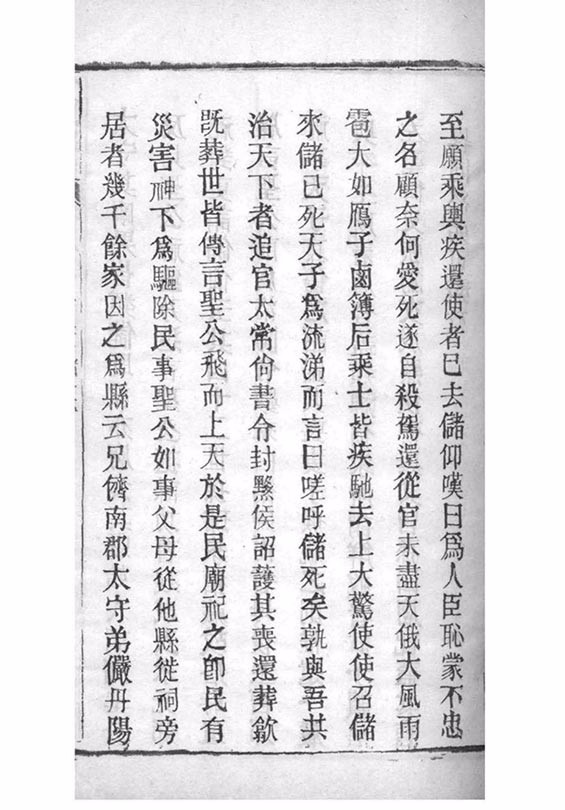 至願乘輿疾還使者已去儲仰嘆曰爲人臣恥蒙不忠
之名顧奈何愛死遂自殺駕還從官未盡天俄大風雨
雹大如鴈子鹵簿后乘士皆疾馳去上大驚使使召儲
來儲已死天子爲流涕而言曰嗟呼儲死矣孰與吾共
治天下者追官太常尙書令封黟侯詔護其喪還葬歙
旣葬世皆傳言聖公飛而上天於是民廟祀之卽民有
災害祌下爲驅除民事聖公如事父母從他縣徙祠旁
居者幾千餘家因之爲縣云兄儕南郡太守弟儼丹陽